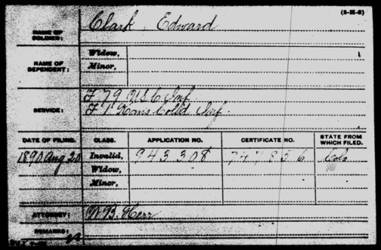 (3-35-8)
NAME OF SOLDIER: Clark, Edward
NAME OF DEPENDENT: Widow,
Minor,
SERVICE: F 79 U.S.C. Inf.
F 1 Kans. Col'd Inf.
DATE OF FILING. CLASS. APPLICATION NO. CERTIFICATE NO. STATE FROM WHICH FILED.
1890 Aug 20 Invalid, 943308 Colo
Widow,
Minor,
ATTORNEY: W.B. Herr
REMARKS: